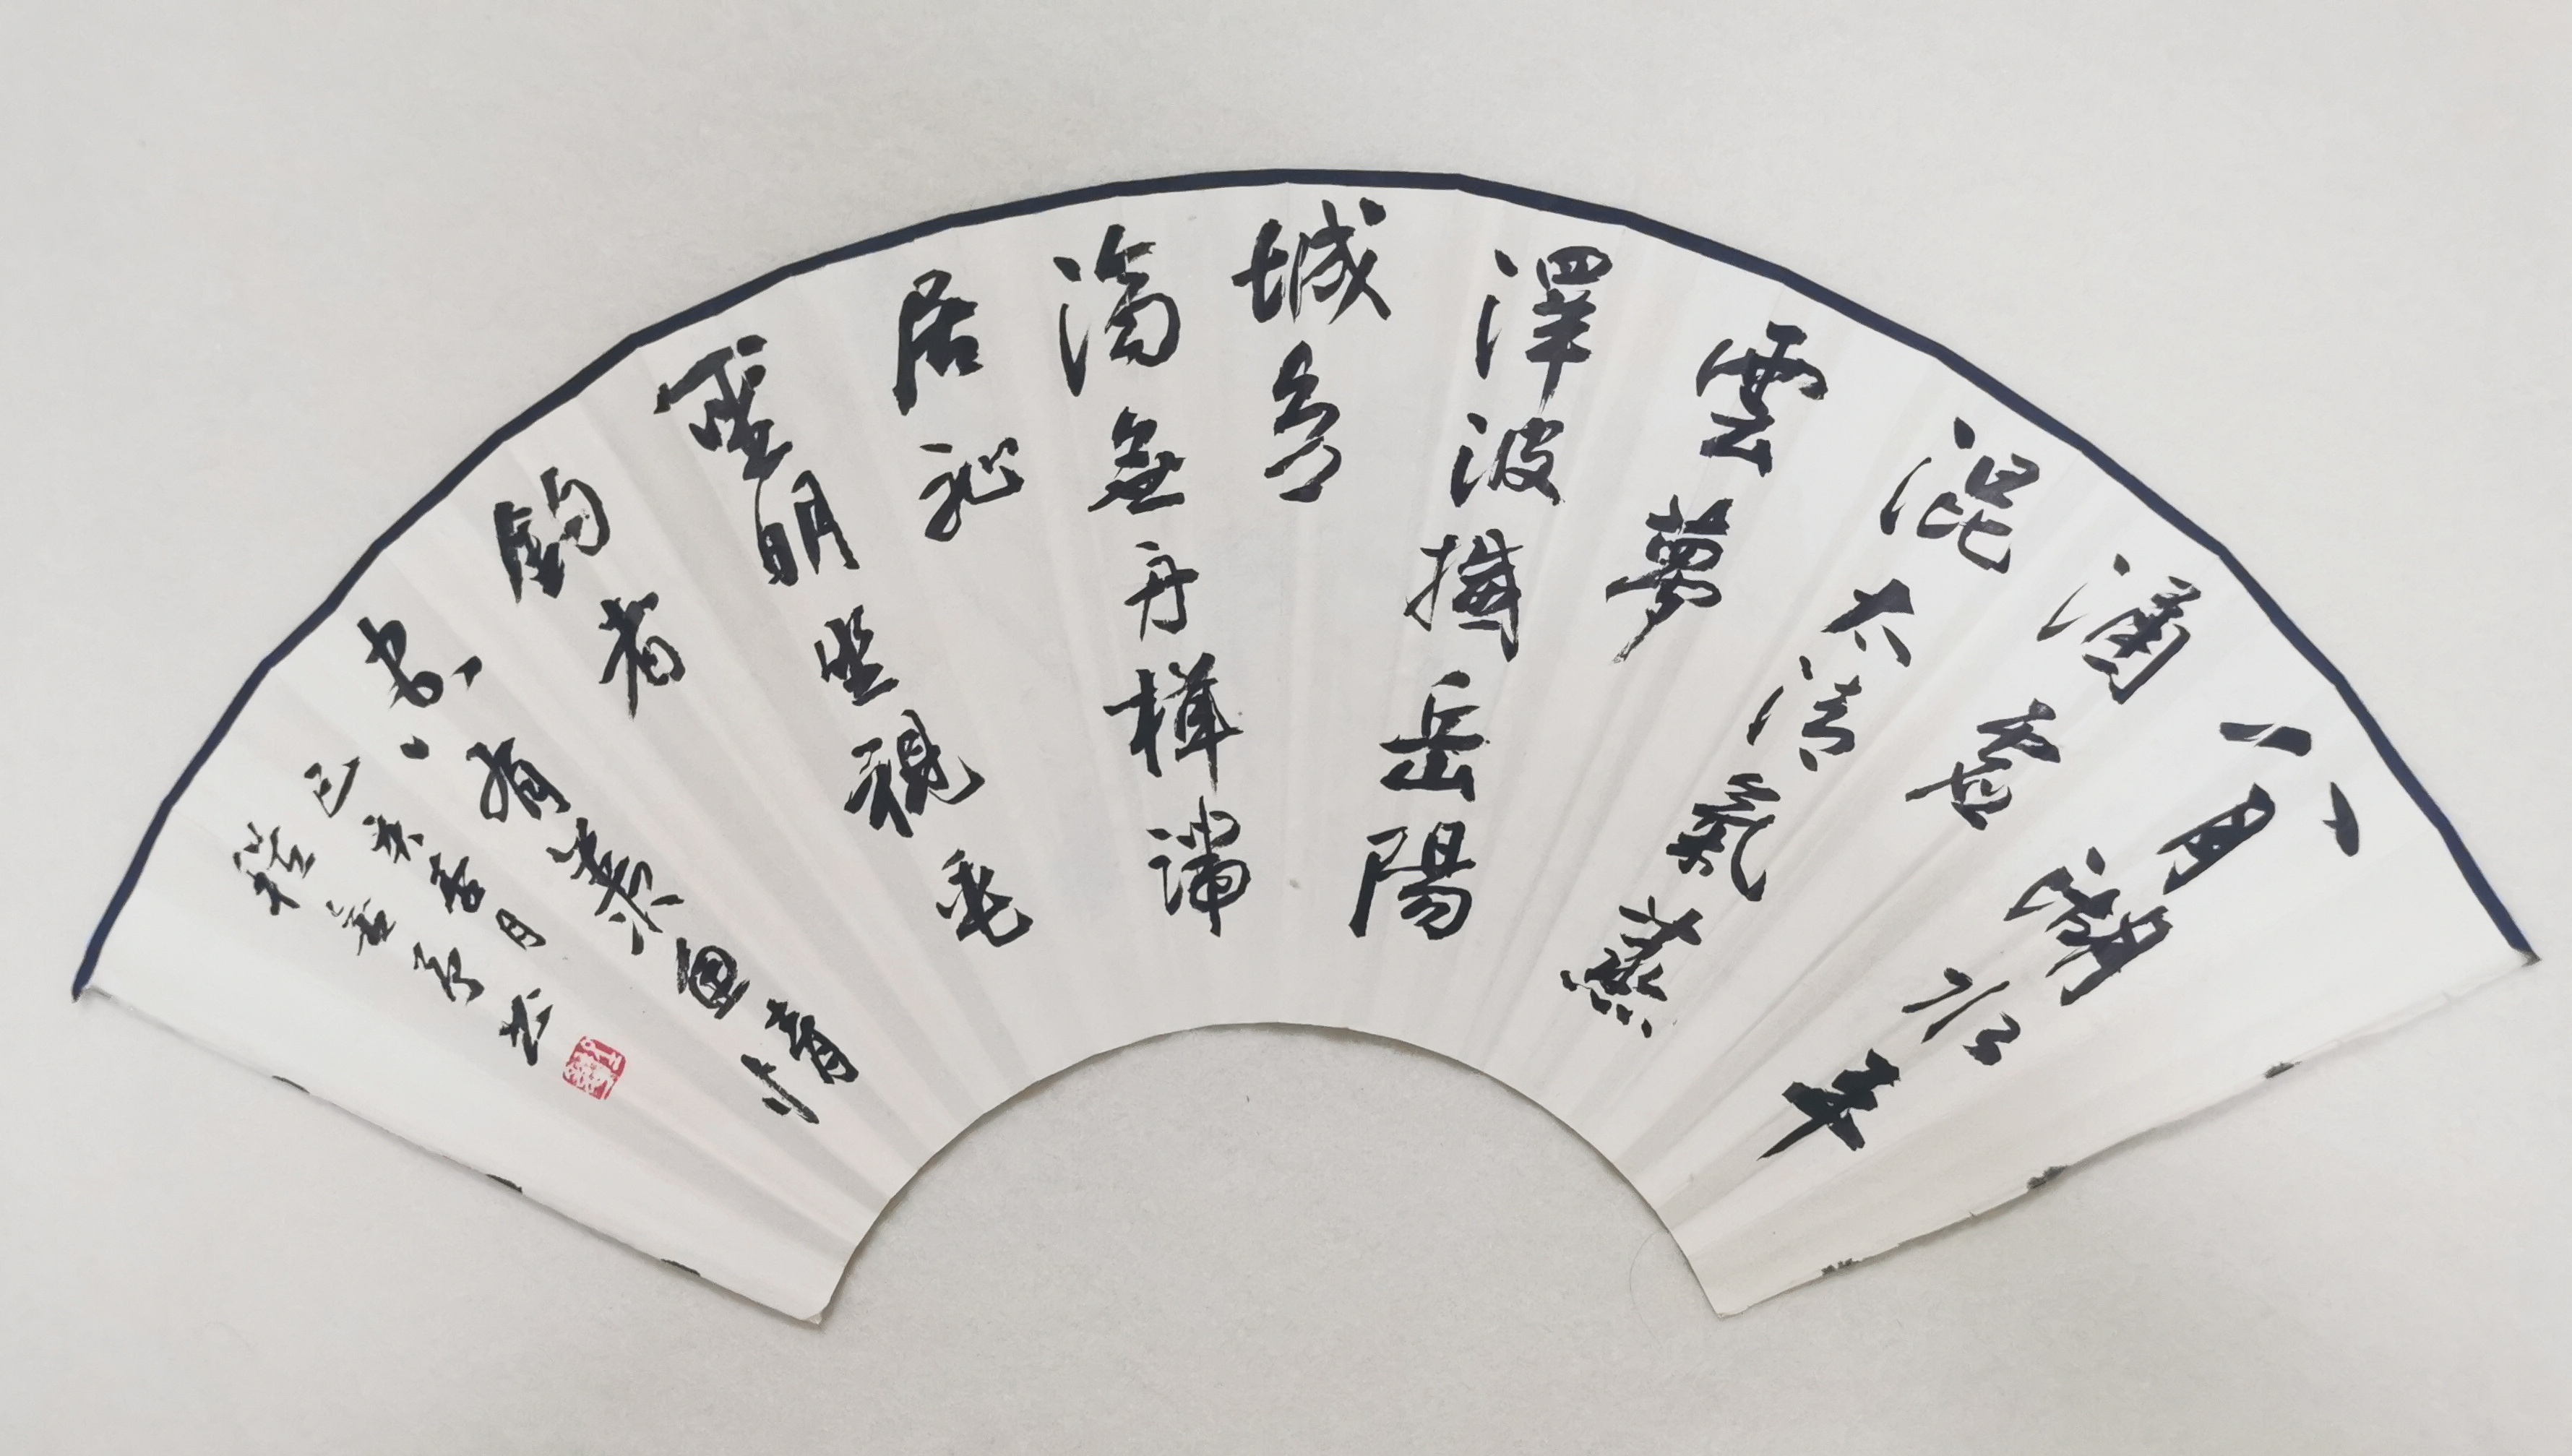 八月湖水平
涵虛
混太清氣蒸
雲夢
澤波撼岳陽
城欲
濟無舟楫端
居恥
聖明坐視垂
釣者
有羨魚情
己亥春月
书